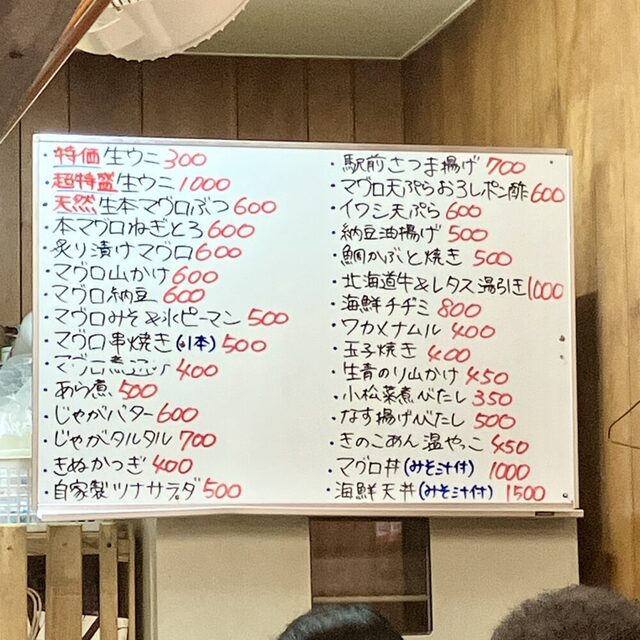 ・特価 生ウニ 300
・超特盛 生ウニ 1000
・天然 生本マグロぶつ 600
・本マグロねぎとろ 600
・炙り漬けマグロ 600
・マグロ山かけ 600
・マグロ納豆 600
・マグロみそ&氷ピーマン 500
・マグロ串焼き(1本) 500
・マグロ煮 400
・あら煮 500
・じゃがバター 600
・じゃがタルタル 700
・きぬかつぎ 400
・自家製ツナサラダ 500
・駅前さつま揚げ 700
・マグロ天ぷらおろしポン酢 600
・イワシ天ぷら 600
・納豆油揚げ 500
・鯛かぶと焼き 500
・北海道牛&レタス湯引き 1000
・海鮮チヂミ 800
・ワカメナムル 400
・玉子焼き 400
・生青のり山かけ 450
・小松菜煮びたし 350
・なす揚げびたし 500
・きのこあん温やっこ 450
・マグロ丼(みそ汁付) 1000
・海鮮天丼(みそ汁付) 1500